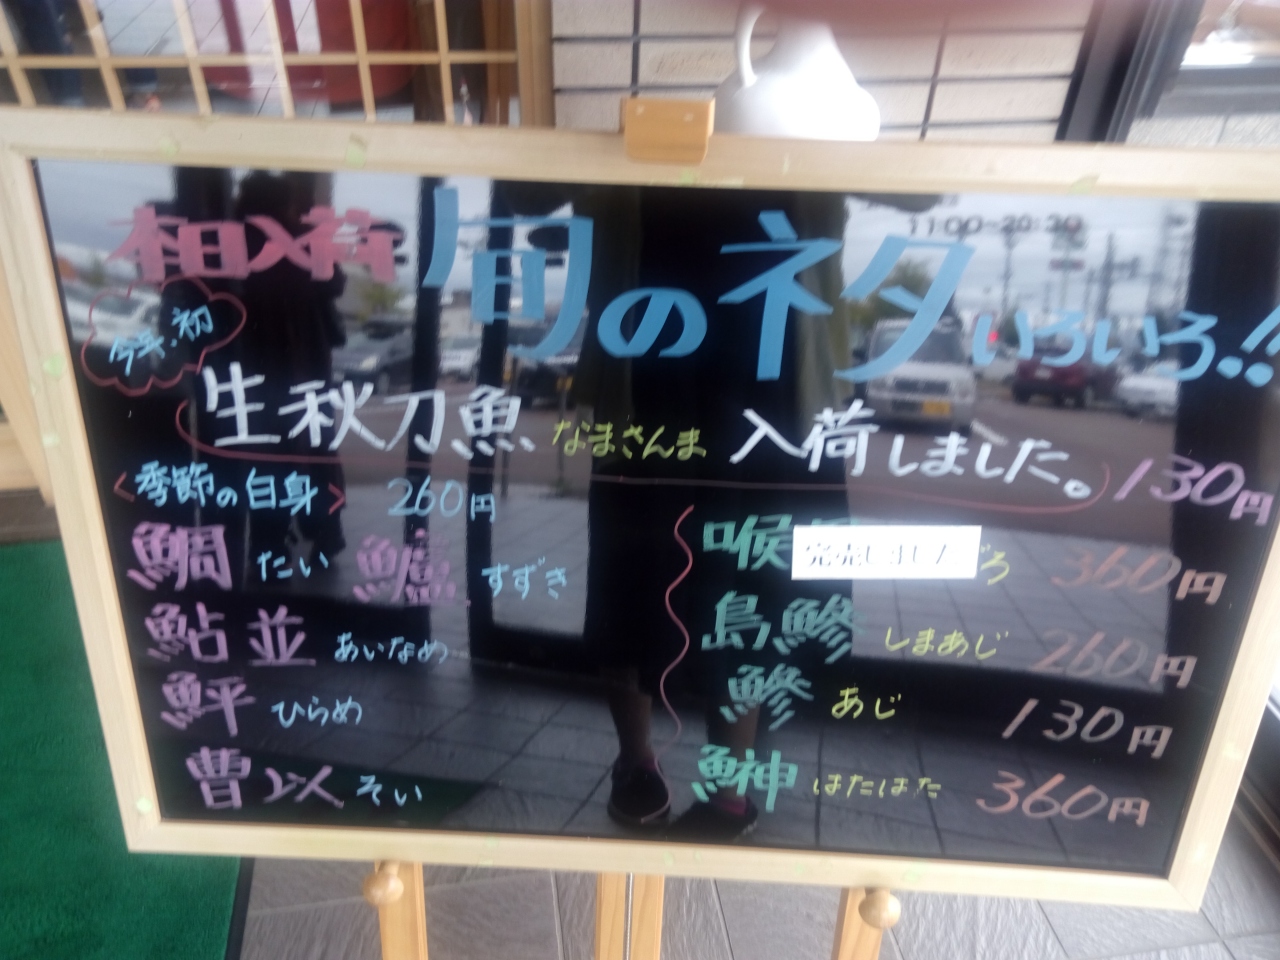 11:00~20:30
入荷 旬のネタいろいろ!!
今年初
生秋刀魚 なまさんま 入荷しました。130円
<季節の白身> 260円
鯛 たい 鱸 すずき
鮎並 あいなめ
鮃 ひらめ
曹以 そい
喉 完売しました ろ 360円
島鯵 しまあじ 260円
鯵 あじ 130円
鰰 はたはた 360円